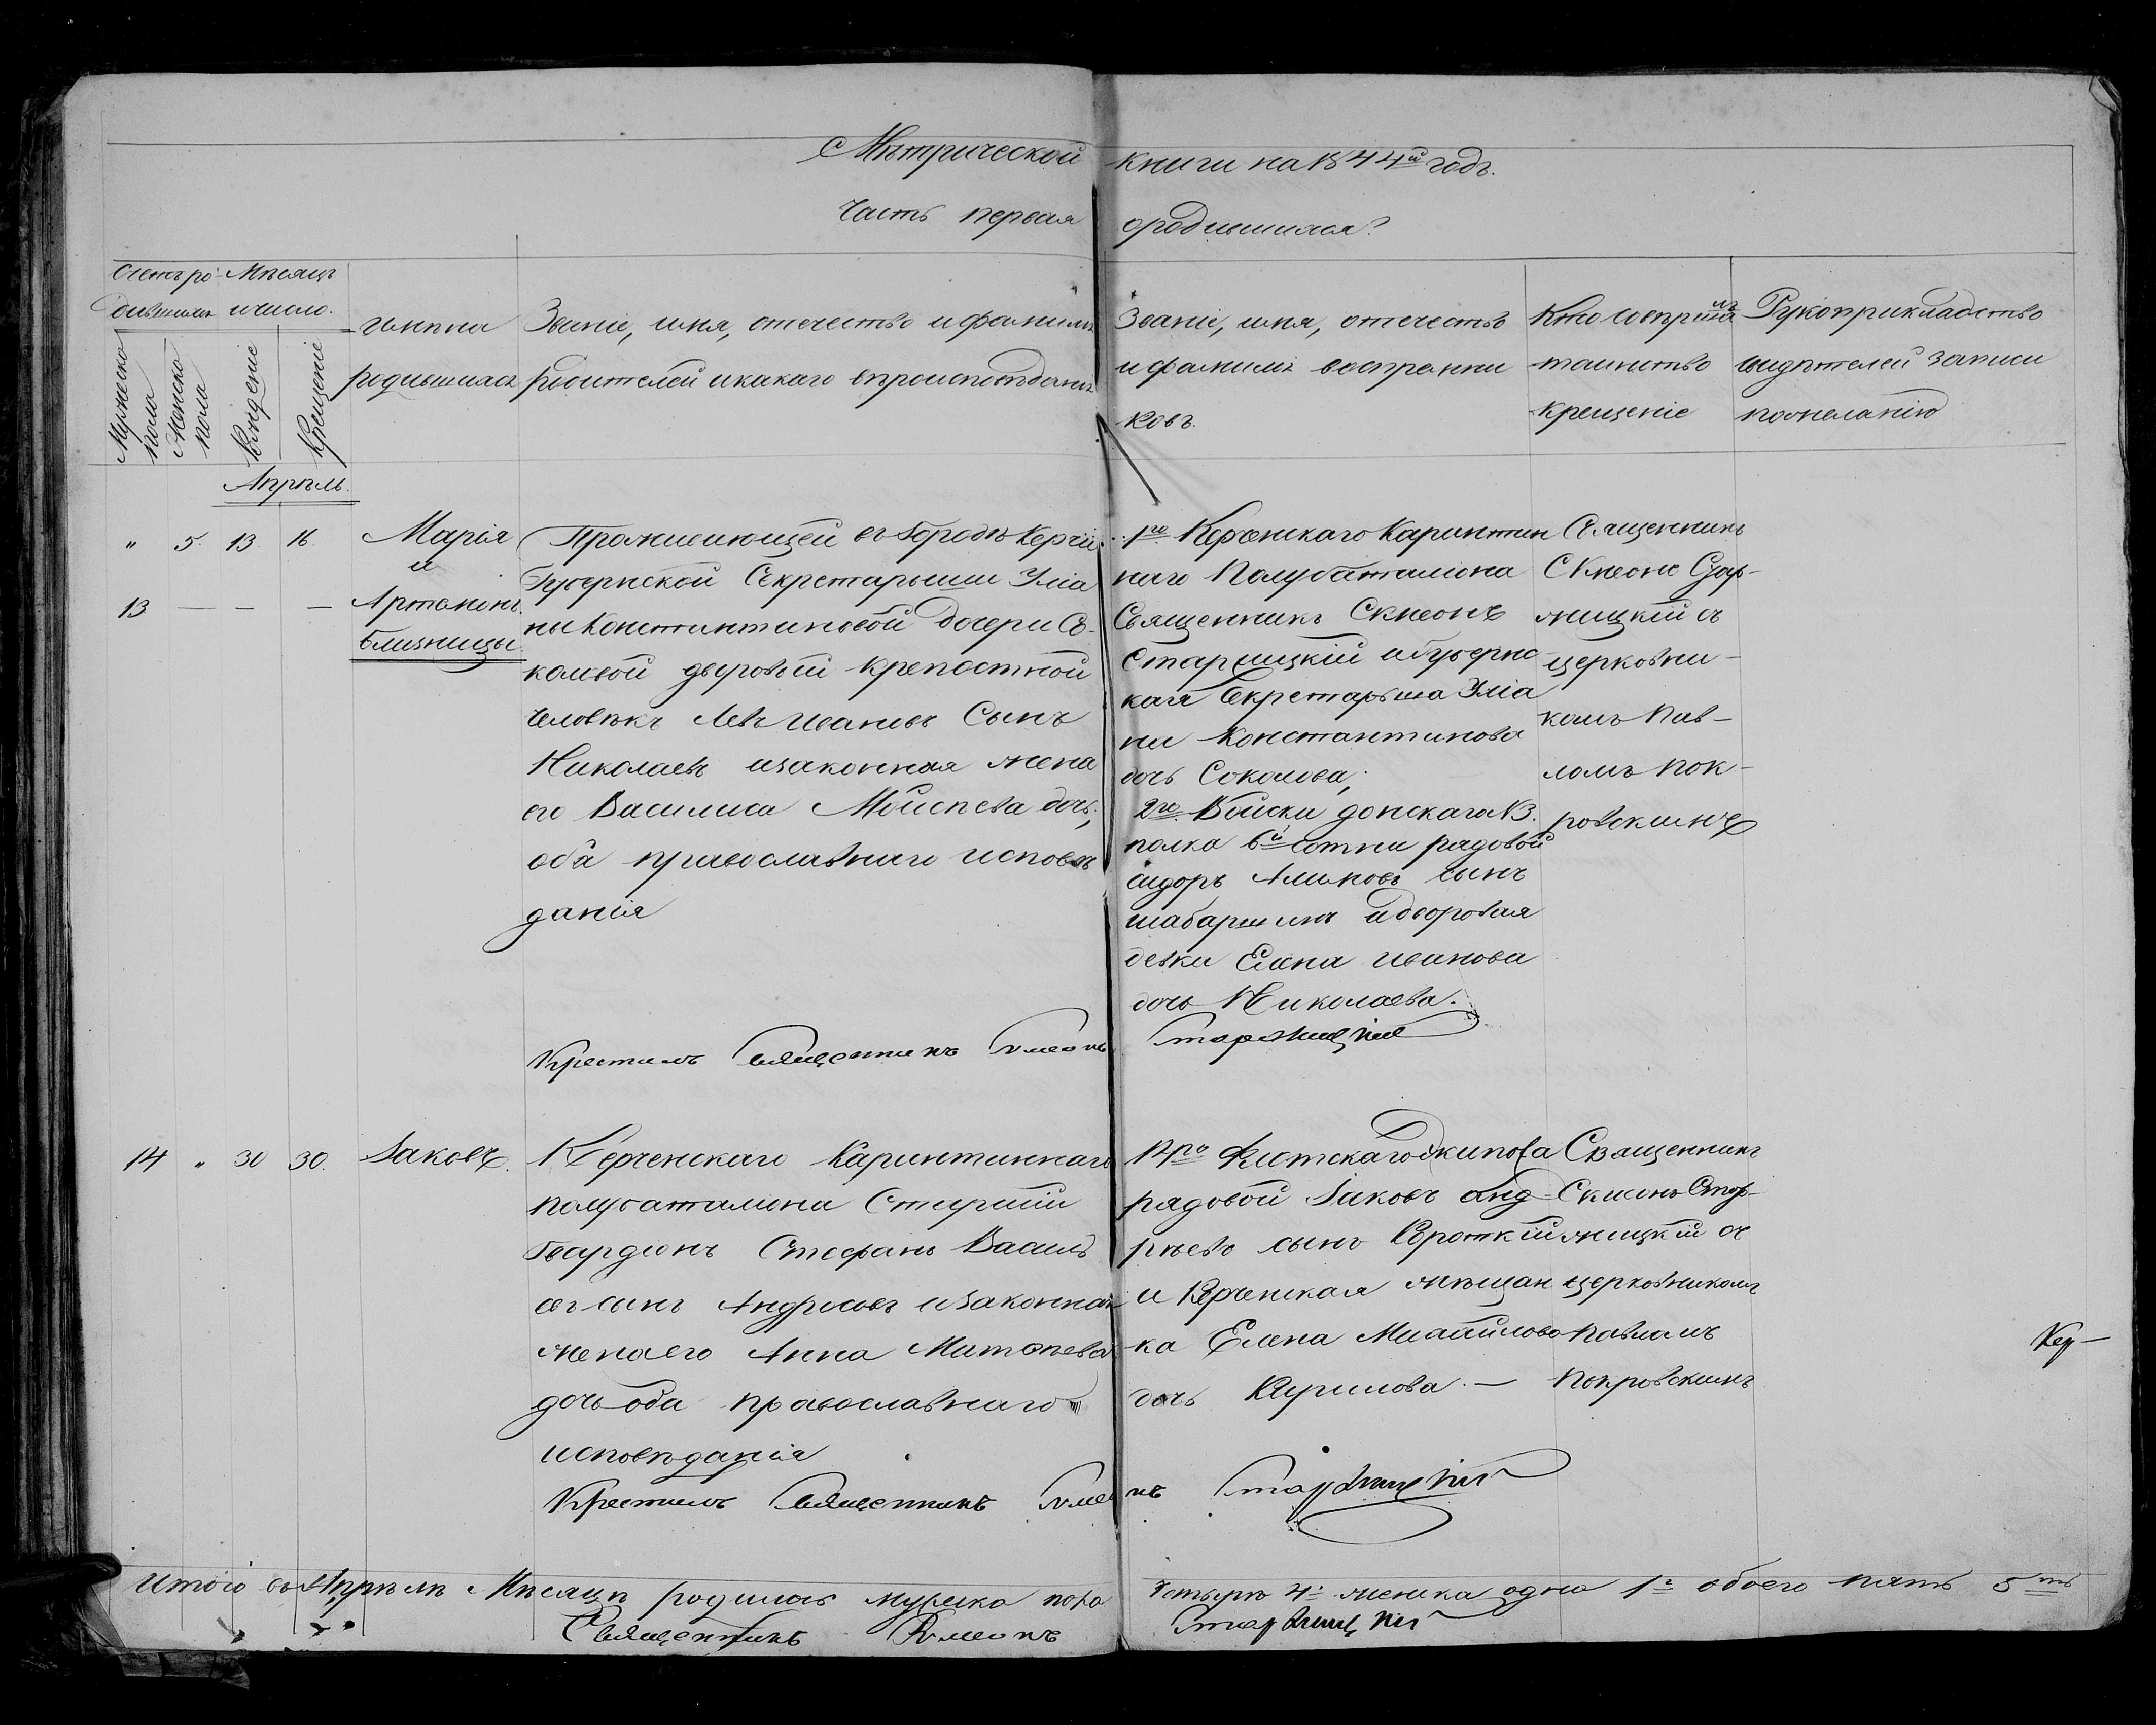 Мѣтрической книги на 1844й годъ.
Часть первая о родившихся?
Счетъ ро- Мѣсяцъ
дившихся и число.
Мужеска пола
Женска пола
Рожденіе
Крещеніе
Имена
родившихся
Званіе, имя, отечество и фамилія
родителей и какаго вѣроисповѣданія
Званіе, имя, отечество
и фамилія воспріемни
ковъ.
Кто соверши
таинство
крещеніе
Рукоприкладство
свидѣтелей записи
по желанію
Апрѣль.
" 5. 13 16.
13 — — —
Марія
и
Артамонъ
близницы
Проживающей въ Городѣ Керчи
Губернской Секретарьши Уліа
ны Константиновой дочери Со-
коловой дворовый крепостной
человѣкъ Левъ Ивановъ Сынъ
Николаевъ и законная жена
его Василиса Моисѣева дочь,
оба православнаго исповѣ
данія
1го Керченскаго Карантин
наго Полубаталіона
Священникъ Симеонъ
Старжицкій и губернс
кая Секретарьша Уліа
на Константинова
дочь Соколова;
2го Войска донскаго 13.
полка 6й сотни рядовой
сидоръ сынъ
и дворовая
девка Елена Иванова
дочь Николаева.
Священникъ
Симеонъ Стар-
жицкій съ
церковни-
комъ Пав-
ломъ Пок-
ровскимъ
Крестилъ Священникъ Симеонъ Старжицкій
14 " 30 30.
Іаковъ.
Керченскаго Карантиннаго
полубаталіона Старшій
Гвардіонъ Стефанъ Василь
евъ сынъ Андрѣевъ и законная
жена его Анна Матвѣева
дочь оба православнаго
исповѣданія
1го Флотскаго Экипажа
рядовой Іаковъ Анд-
рѣевъ сынъ Короткій
и Керченская мѣщан
ка Елена Михайлова
дочь Кирилова. —
Священникъ
Симеонъ Стар-
жицкій съ
церковникомъ
Павломъ
Покровскимъ
Кер-
Крестилъ Священникъ Симеонъ Старжицкій
Итого въ Апрѣлѣ Мѣсяцѣ родилось мужска пола четыре 4. женска одна 1. обоего пять 5ть
Священникъ Симеонъ Старжицкій